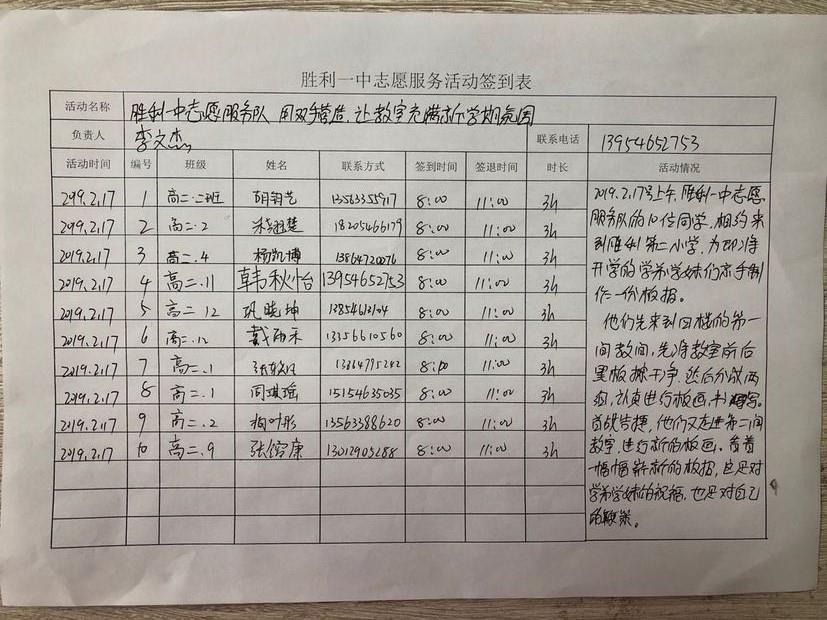 胜利一中志愿服务活动签到表
活动名称 胜利一中志愿服务队 用双手营造,让教室充满新学期氛围
负责人 李文杰 联系电话 13954652753
活动时间 编号 班级 姓名 联系方式 签到时间 签退时间 时长 活动情况
2019.2.17 1 高二.二班 胡钧艺 13563355917 8:00 11:00 3h
2019.2.17 2 高二.2 18205466179 8:00 11:00 3h
2019.2.17 3 高二.4 杨凯博 13864720076 8:00 11:00 3h
2019.2.17 4 高二.11 韩秋怡 13954652753 8:00 11:00 3h
2019.2.17 5 高二 12 巩晓坤 13854612104 8:00 11:00 3h
2019.2.17 6 高二.12 戴雨禾 13356610560 8:00 11:00 3h
2019.2.17 7 高二.1 13864795242 8:00 11:00 3h
2019.2.17 8 高二.1 周琪瑶 15154635035 8:00 11:00 3h
2019.2.17 9 高二.2 13563388620 8:00 11:00 3h
2019.2.17 10 高二.9 张镕康 13012905288 8:00 11:00 3h
2019.2.17号上午,胜利一中志愿
服务队的10位同学,相约来
到胜利第二小学,为即将
开学的学弟学妹们亲手制
作一份板报。
他们先来到四楼的第一
间教间,先将教室前后
黑板擦干净,然后分成两
组,认真进行板画,书写。
首战告捷,他们又走进第二间
教室,进行新的板画。看着
一幅幅崭新的板报,这是对
学弟学妹的祝福,也是对自己
的鞭策。